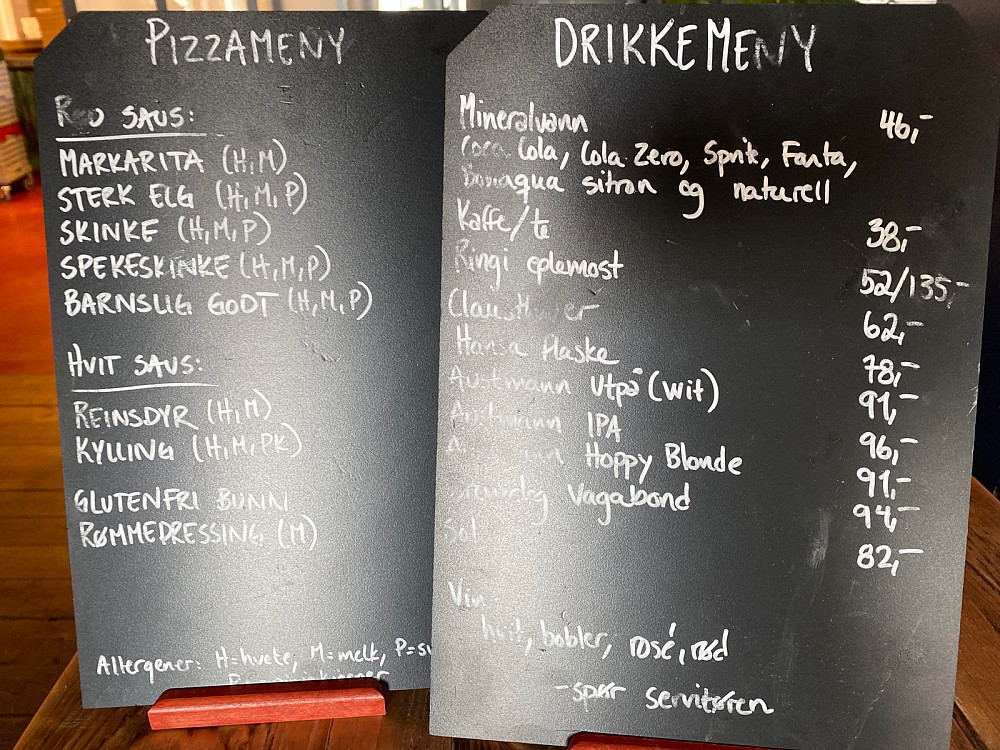 PIZZAMENY
RØD SAUS:
MARKARITA (H,M)
STERK ELG (H,M,P)
SKINKE (H,M,P)
SPEKESKINKE (H,M,P)
BARNSLIG GODT (H,M,P)
HVIT SAUS:
REINSDYR (H,M)
KYLLING (H,M,PK)
GLUTENFRI BUNN
RØMMEDRESSING (M)
Allergener: H=hvete, M=melk, P=sv
DRIKKEMENY
Mineralvann 46,-
Coca Cola, Cola Zero, Sprite, Fanta,
Bonaqua sitron og naturell
Kaffe/te 38,-
Ringi eplemost 52/135,-
Clausthaler 62,-
Hansa flaske 78,-
Austmann Utpå (wit) 91,-
Austmann IPA 96,-
Hoppy Blonde 91,-
Vagabond 94,-
Sol 82,-
Vin
hvit, bobler, rosé, rød
- spør servitøren